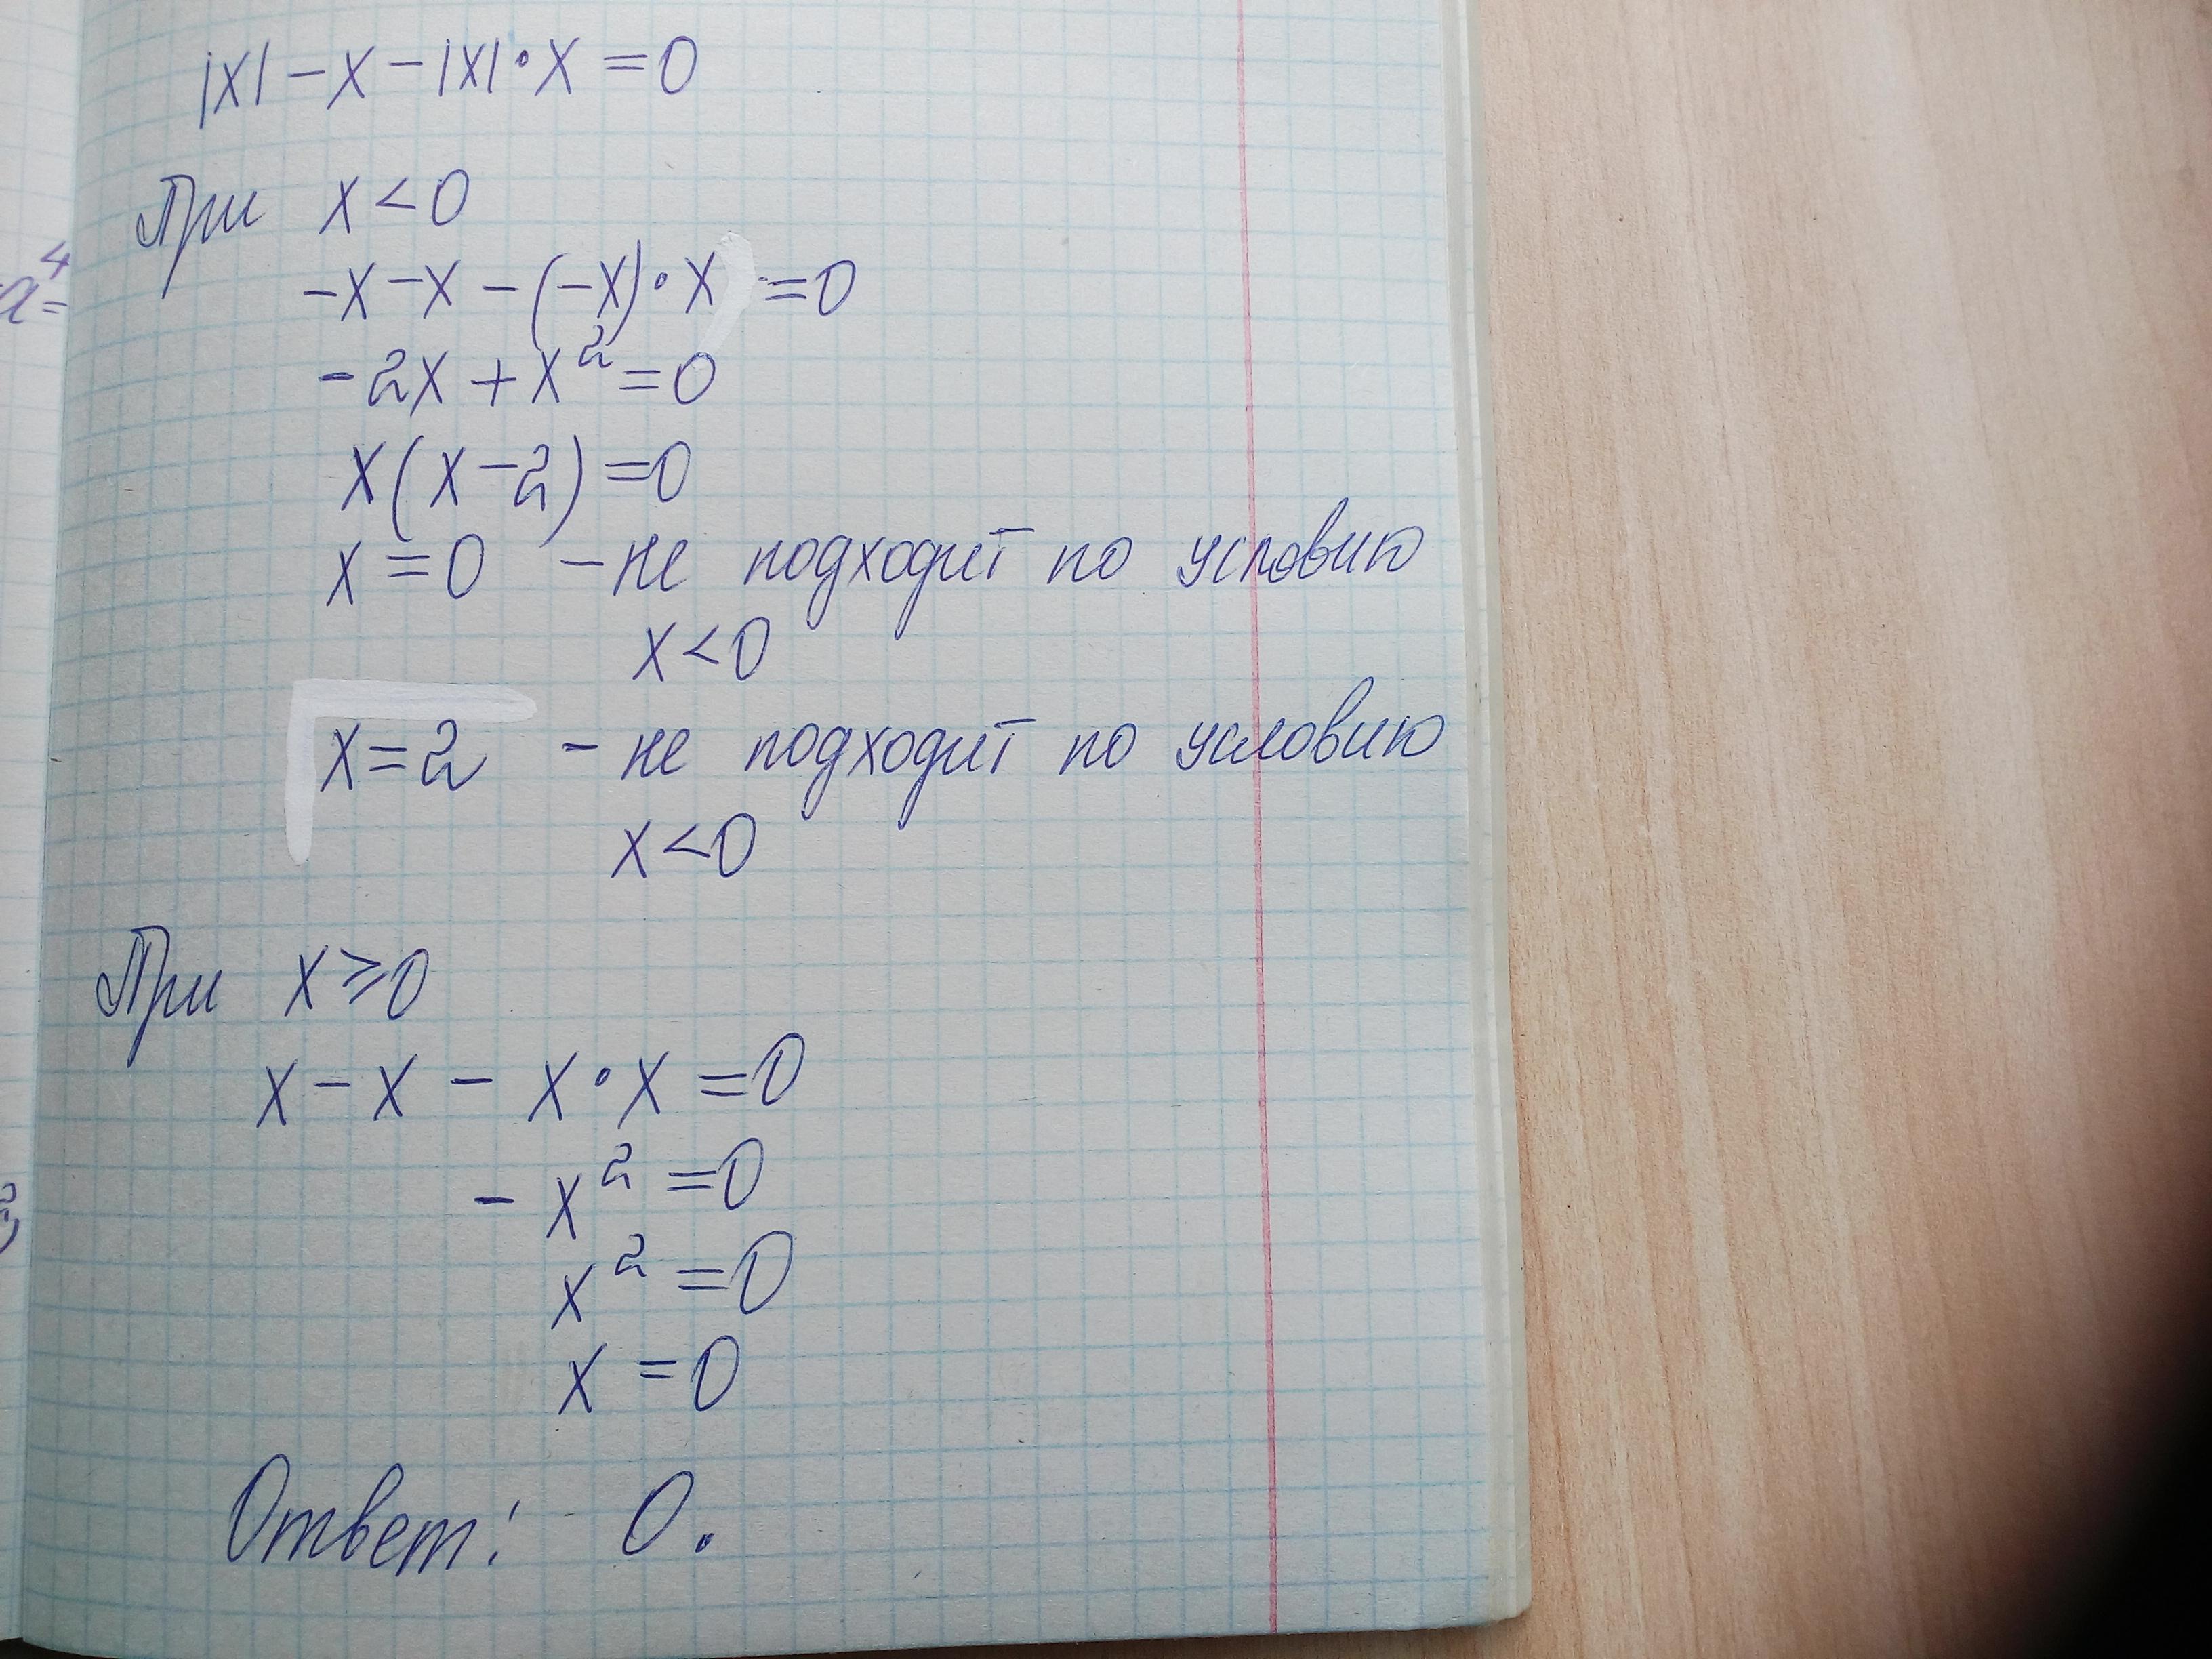 |x| - x - |x| · x = 0
При x < 0
-x - x - (-x) · x = 0
-2x + x² = 0
x(x - 2) = 0
x = 0 - не подходит по условию
x < 0
x = 2 - не подходит по условию
x < 0
При x ⩾ 0
x - x - x · x = 0
- x² = 0
x² = 0
x = 0
Ответ: 0.
a⁴=